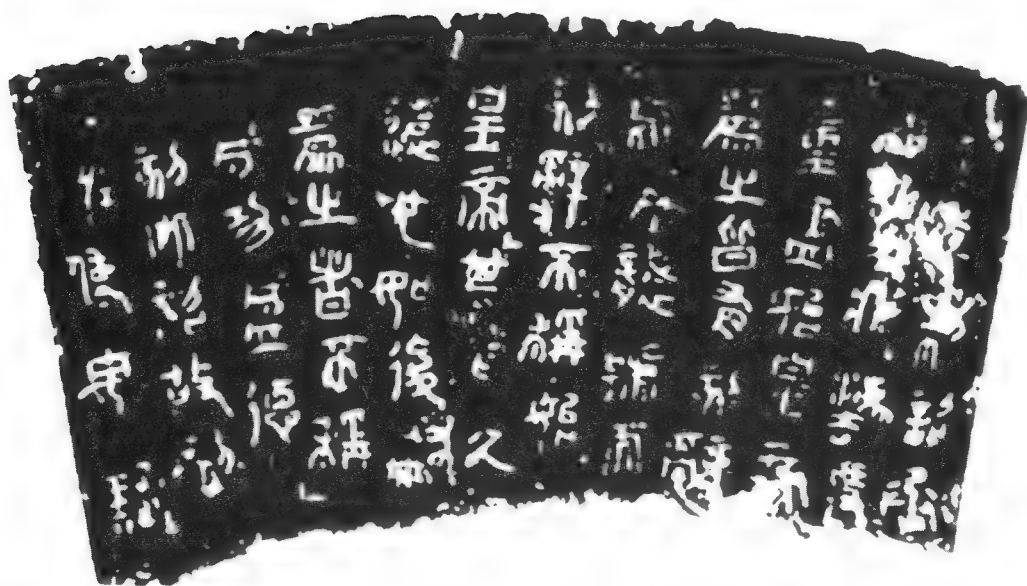 詔丞
疾灋度
量盡始皇帝
爲之皆有刻辭
焉今襲號而
刻辭不稱始
皇帝其於久
遠也如後嗣
爲之者不稱
成功盛德
刻此詔故刻
左使毋疑